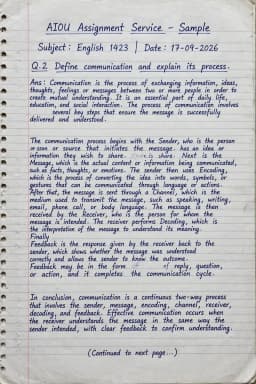 AIOU Assignment Service - Sample
Subject: English 1423 | Date: 17-09-2026
Q.2 Define communication and explain its process.
Ans: Communication is the process of exchanging information, ideas,
thoughts, feelings or messages between two or more people in order to
create mutual understanding. It is an essential part of daily life,
education, and social interaction. The process of communication involves
several key steps that ensure the message is successfully
delivered and understood.
The communication process begins with the Sender, who is the person
or source that initiates the message. has an idea or
information they wish to share. is share. Next is the
Message, which is the actual content or information being communicated,
such as facts, thoughts, or emotions. The sender then uses Encoding,
which is the process of converting the idea into words, symbols, or
gestures that can be communicated through language or actions.
After that, the message is sent through a Channel, which is the
medium used to transmit the message, such as speaking, writing,
email, phone call, or body language. The message is then
received by the Receiver, who is the person for whom the
message is intended. The receiver performs Decoding, which is
the interpretation of the message to understand its meaning.
Finally
Feedback is the response given by the receiver back to the
sender, which shows whether the message was understood
correctly and allows the sender to know the outcome.
Feedback may be in the form of reply, question,
or action, and it completes the communication cycle.
In conclusion, communication is a continuous two-way process
that involves the sender, message, encoding, channel, receiver,
decoding, and feedback. Effective communication occurs when
the receiver understands the message in the same way the
sender intended, with clear feedback to confirm understanding.
(Continued to next page...)